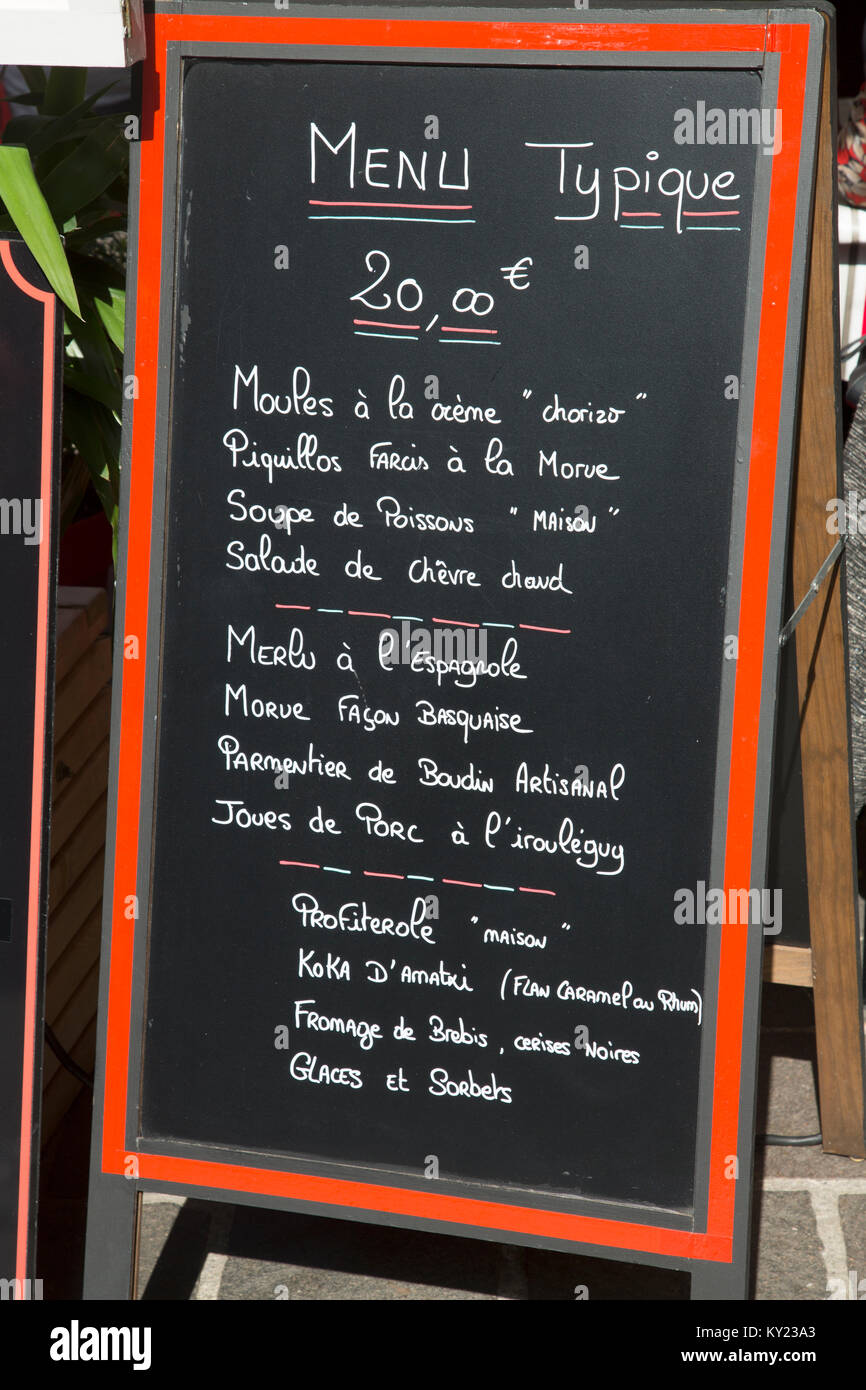 Menu Typique
20,00 €
Moules à la crème "chorizo"
Piquillos Farcis à la Morue
Soupe de Poissons "Maison"
Salade de Chêvre chaud
Merlu à l'Espagnole
Morue Façon Basquaise
Parmentier de Boudin Artisanal
Joues de Porc à l'irouléguy
Profiterole "maison"
Koka D'Amatxi (Flan Caramel au Rhum)
Fromage de Brebis, cerises Noires
Glaces et Sorbets
alamy stock photo
KY23A3
www.alamy.com